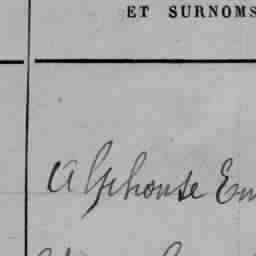 ET SURNOMS
Alphonse Em